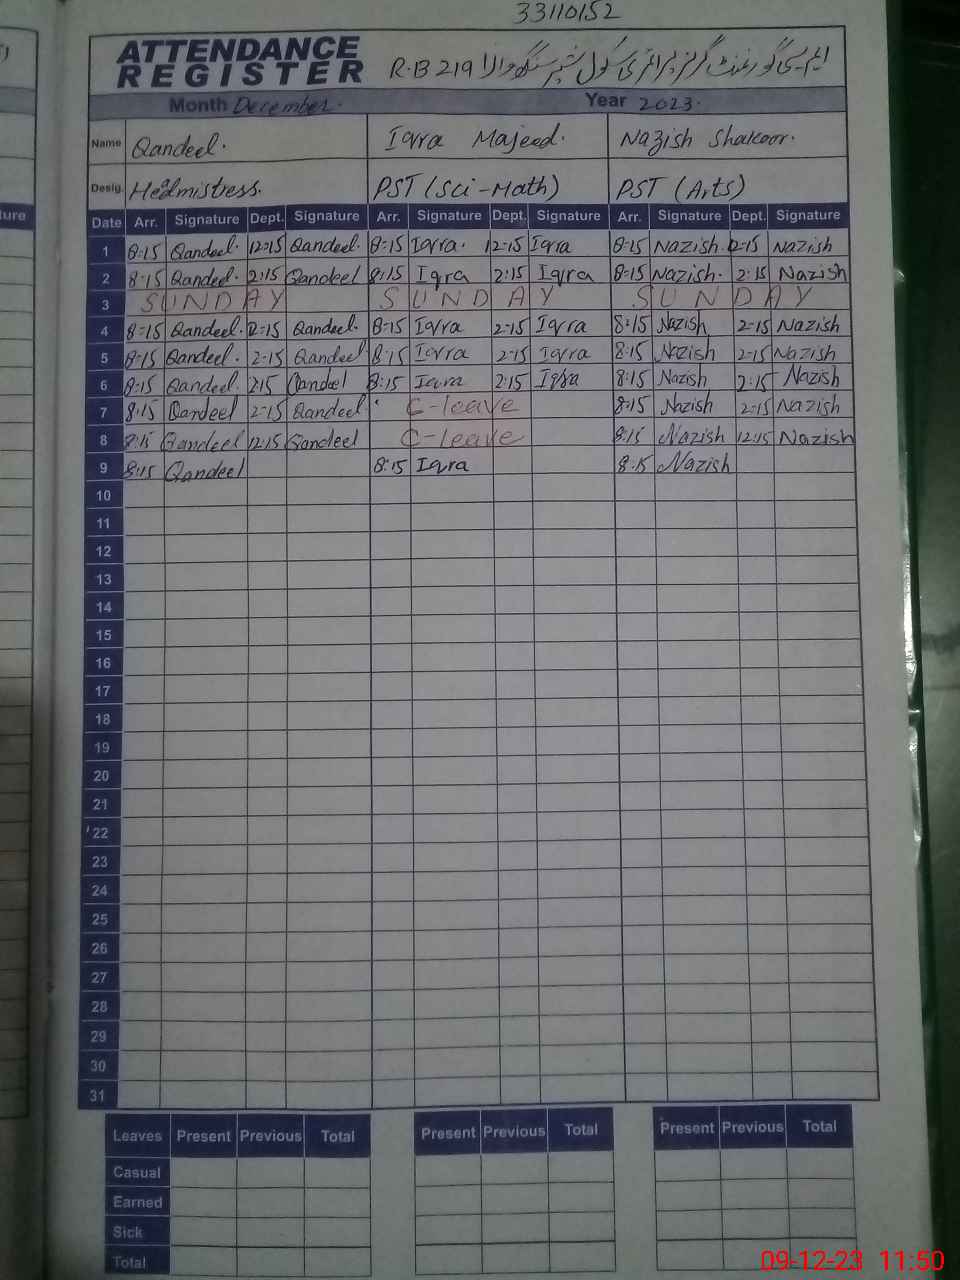 33110152
ATTENDANCE
REGISTER
R-B 219 ایم سی گورنمنٹ گرلز پرائمری سکول شیر سنگھ والا
Month December. Year 2023.
Name Qandeel. Iqra Majeed. Nazish Shakoor.
Desig. Hedmistress. PST (Sci-Math) PST (Arts)
Date Arr. Signature Dept. Signature Arr. Signature Dept. Signature Arr. Signature Dept. Signature
1 8:15 Qandeel. 12:15 Qandeel. 8:15 Iqra. 12:15 Iqra 8:15 Nazish. 12:15 Nazish
2 8:15 Qandeel. 2:15 Qandeel 8:15 Iqra 2:15 Iqra 8:15 Nazish. 2:15 Nazish
3 SUNDAY SUNDAY SUNDAY
4 8:15 Qandeel. 2:15 Qandeel. 8:15 Iqra 2:15 Iqra 8:15 Nazish 2:15 Nazish
5 8:15 Qandeel. 2:15 Qandeel 8:15 Iqra 2:15 Iqra 8:15 Nazish 2:15 Nazish
6 8:15 Qandeel. 2:15 Qandeel 8:15 Iqra 2:15 Iqra 8:15 Nazish 2:15 Nazish
7 8:15 Qandeel 2:15 Qandeel C-leave 8:15 Nazish 2:15 Nazish
8 8:15 Qandeel 12:15 Qandeel C-leave 8:15 Nazish 12:15 Nazish
9 8:15 Qandeel 8:15 Iqra 8:15 Nazish
10
11
12
13
14
15
16
17
18
19
20
21
22
23
24
25
26
27
28
29
30
31
Leaves Present Previous Total Present Previous Total Present Previous Total
Casual
Earned
Sick
Total
09-12-23 11:50